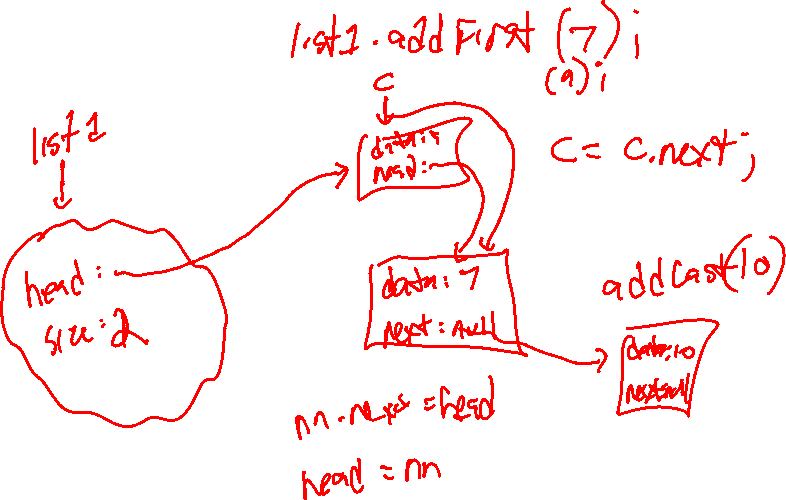 list1.addFirst(7);
(9);
c
list1
data:5
next:
c = c.next;
head:
size:2
data:7
next:null
addLast(10)
data:10
next:null
nn.next=head
head = nn